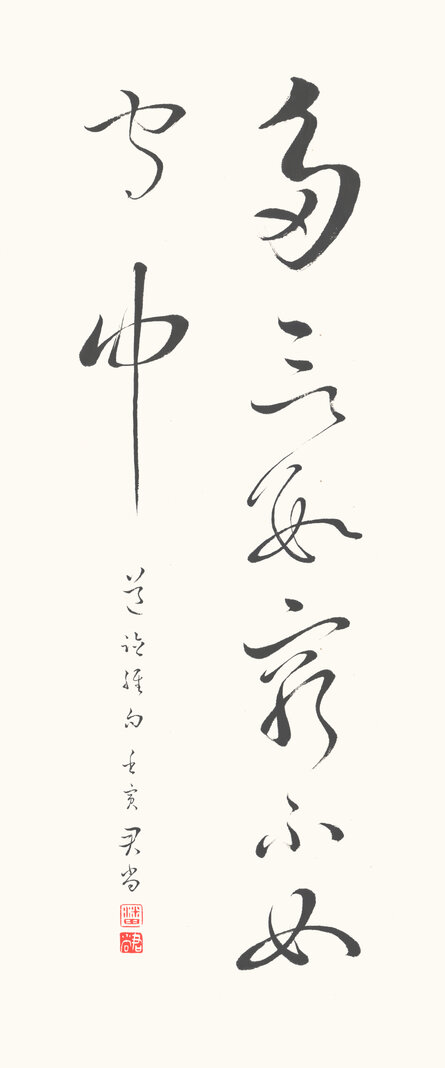 多言數窮不如
守中
道德經句壬寅君尚
君尚